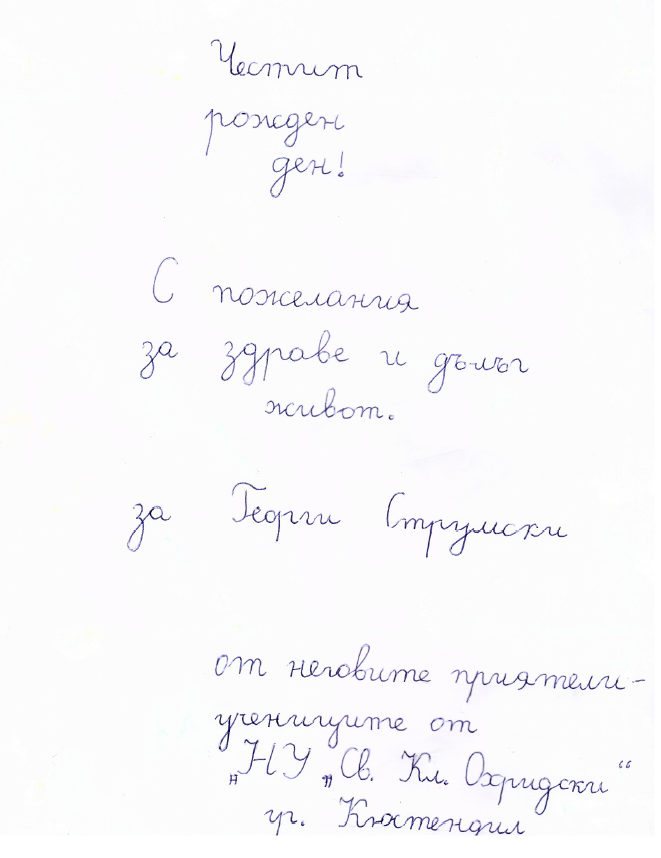 Честит
рожден
ден!
С пожелания
за здраве и дълъг
живот.
за Георги Струмски
от неговите приятели-
учениците от
„НУ „Св. Кл. Охридски“
гр. Кюстендил